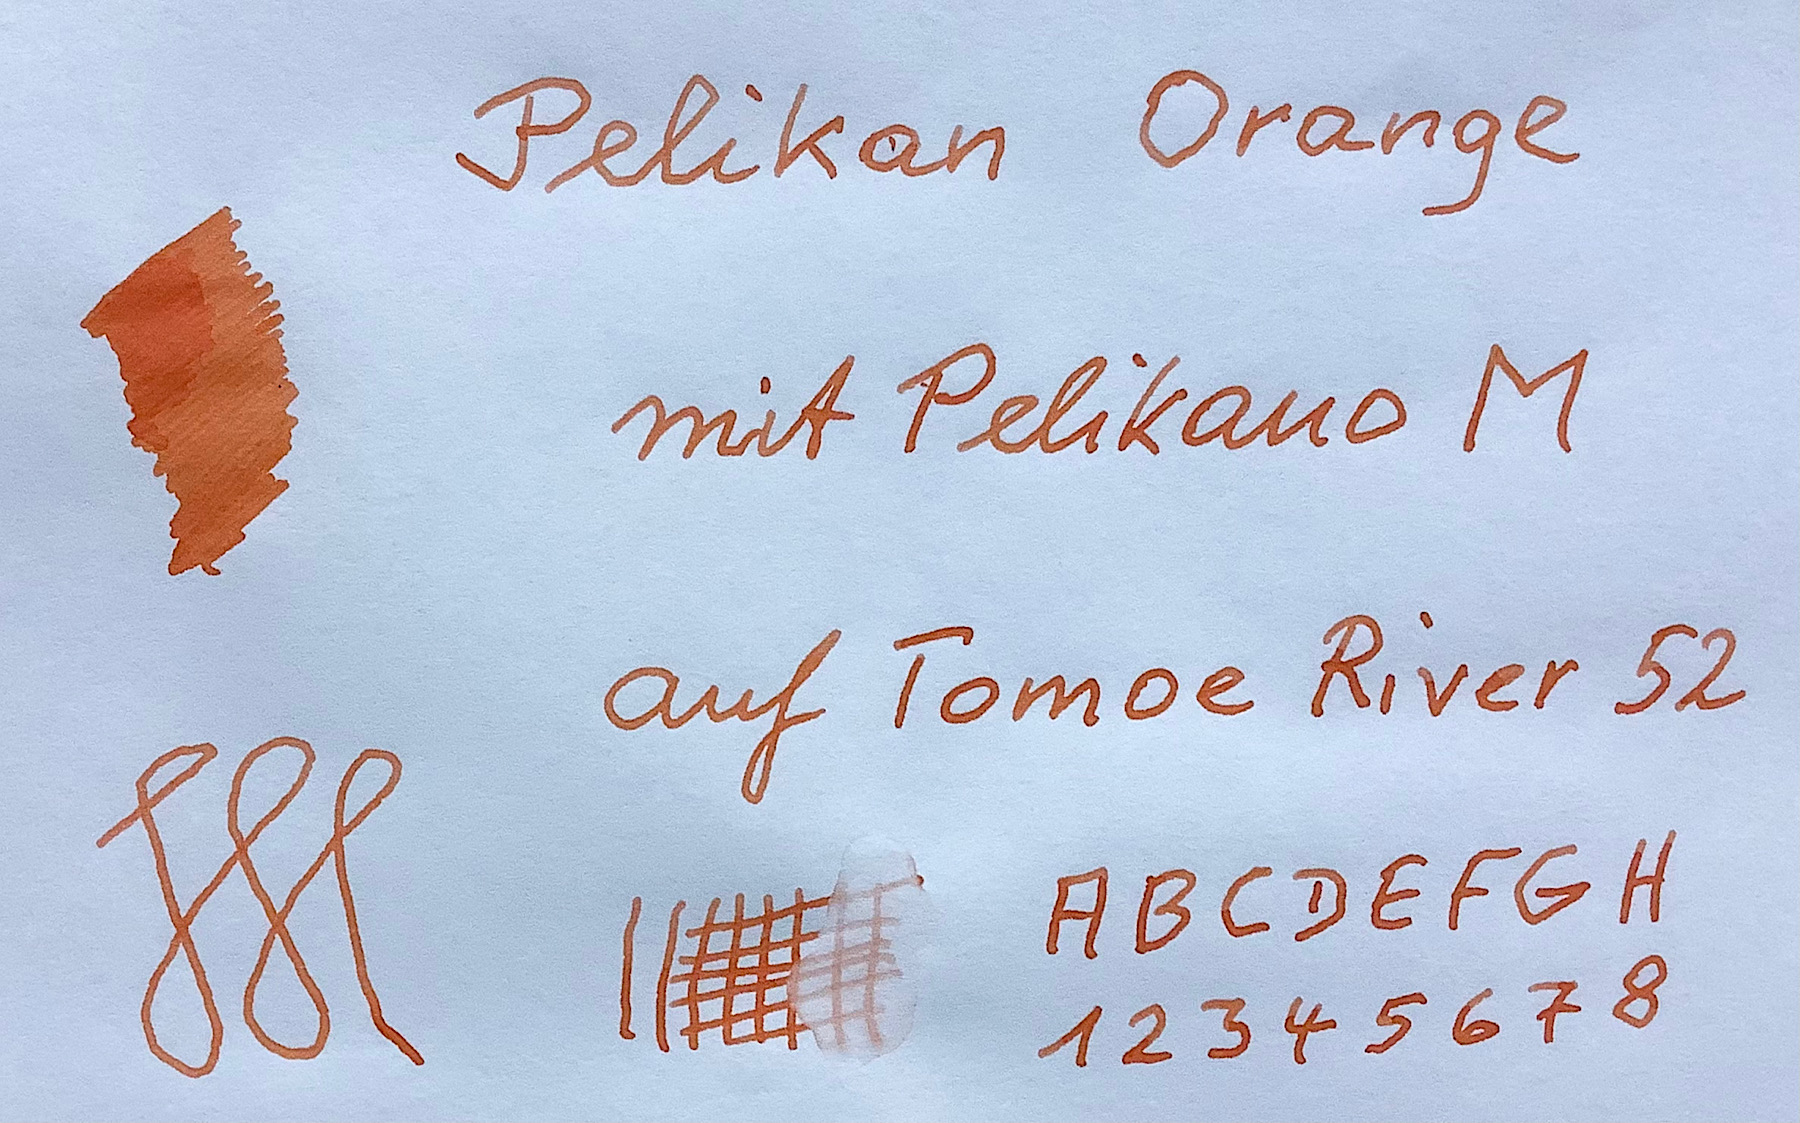 Pelikan Orange
mit Pelikano M
auf Tomoe River 52
ABCDEFGH
12345678